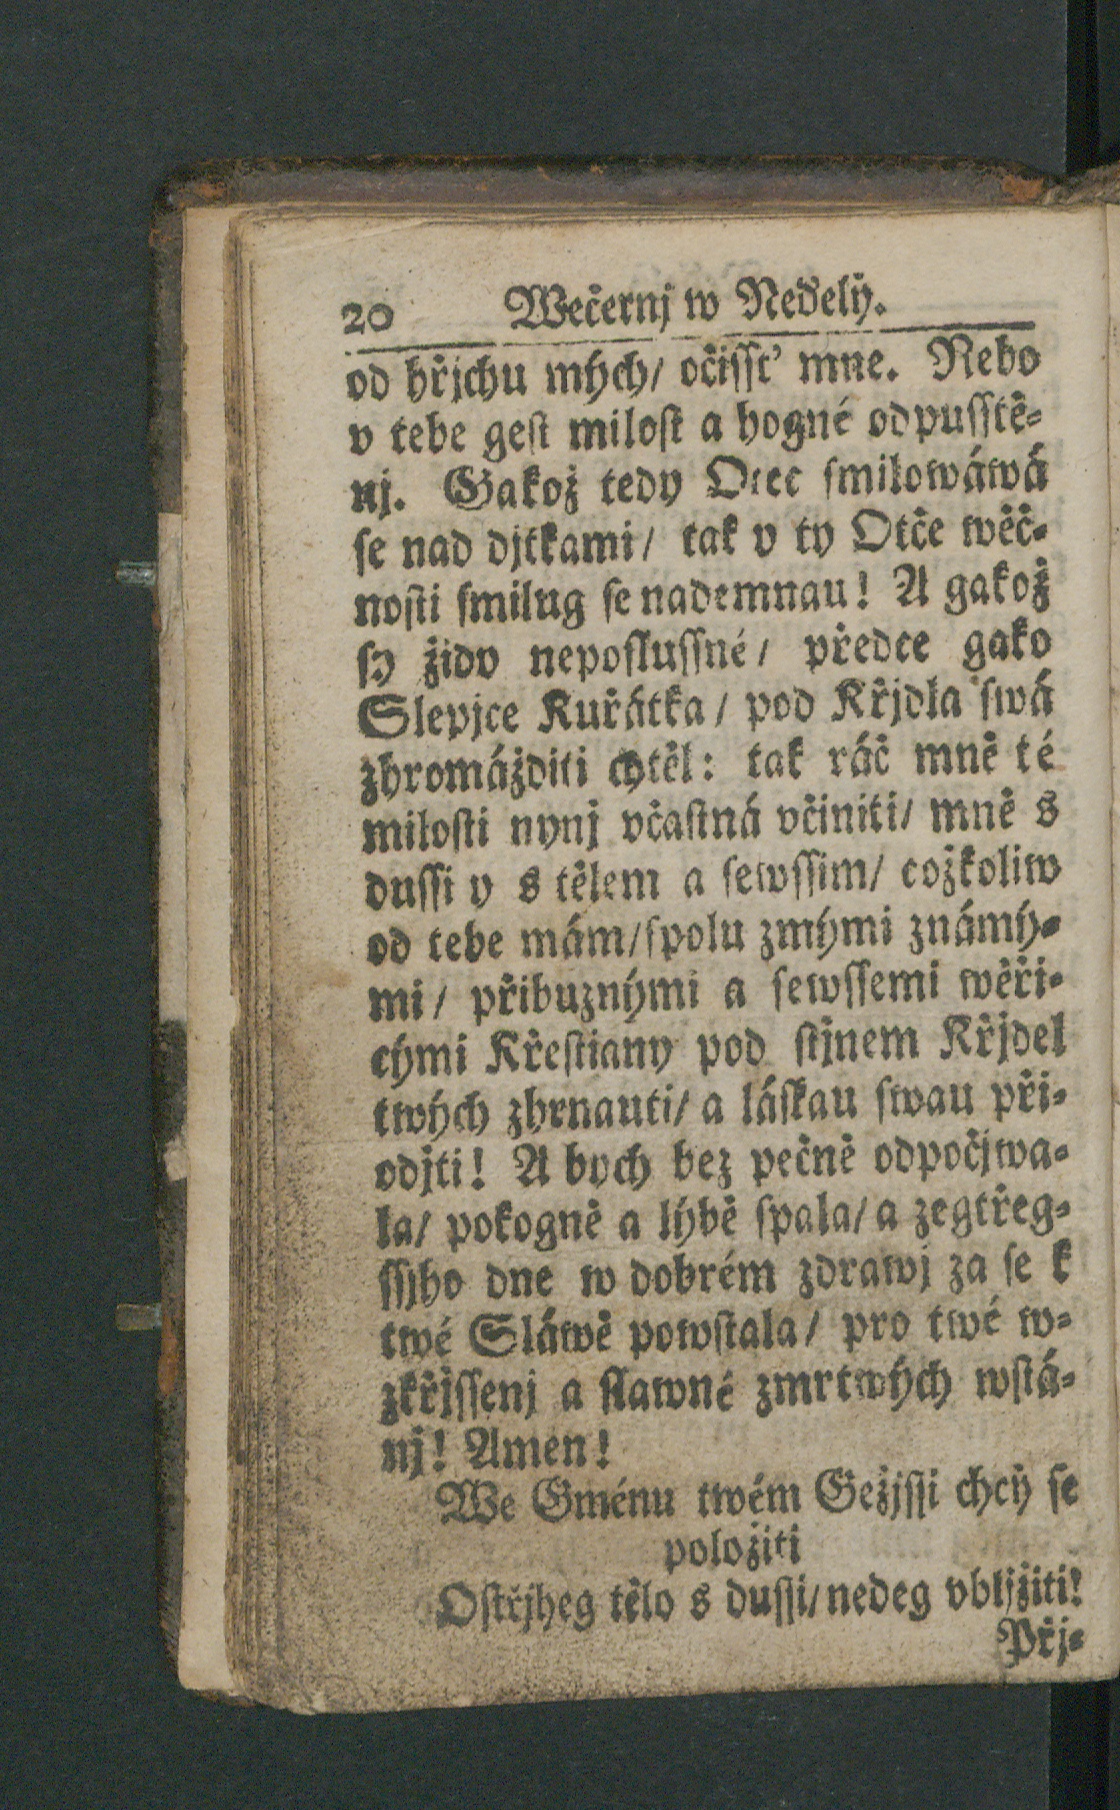 20 Wečernj w Neďelÿ.
od hřjchu mých/ očiſſť mne. Nebo
v tebe geſt miloſt a hogné odpuſſtě-
nj. Gakož tedy Otec ſmilowáwá
ſe nad djtkami/ tak y ty Otče wěč-
noſti ſmilug ſe nademnau! A gakož
ſy židy nepoſluſſné/ předce gako
Slepjce Kuřátka/ pod Křjdla ſwá
zhromážditi chtěl: tak ráč mně té
miloſti nynj včaſtná včiniti/ mně s
duſſi y s tělem a ſewſſim/ cožkoliw
od tebe mám/ſpolu zmými známý-
mi/ přibuznými a ſewſſemi wěři-
cými Křeſtiany pod ſtjnem Křjdel
twých zhrnauti/ a láſkau ſwau při-
odjti! A bych bez pečně odpočjwa-
la/ pokogně a lýbě ſpala/ a zegtřeg-
ſſjho dne w dobrém zdrawj za ſe k
twé Sláwě powſtala/ pro twé w-
zkřjſſenj a ſlawné zmrtwých wſtá-
nj! Amen!
We Gménu twém Gežjſſi chcÿ ſe
položiti
Oſtřjheg tělo s duſſi/nedeg vbljžiti!
Přj-